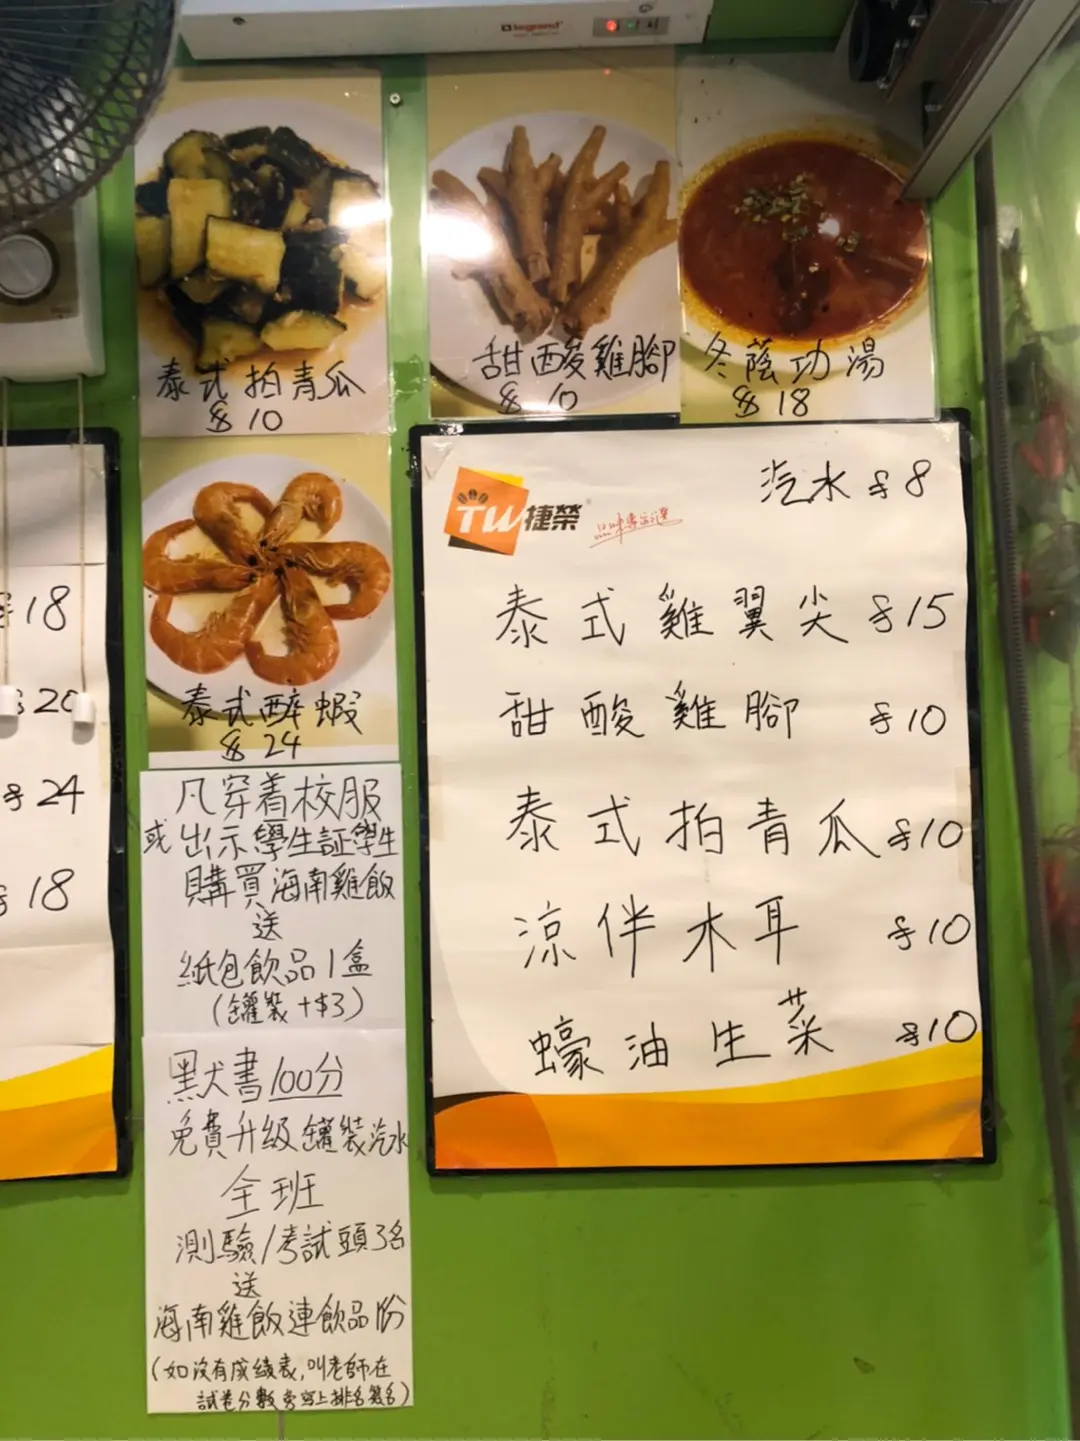 legrand
泰式拍青瓜
$10
甜酸雞腳
$10
冬蔭功湯
$18
泰式醉蝦
$24
$18
$20
$24
$18
凡穿着校服
或出示學生証學生
購買海南雞飯
送
紙包飲品1盒
(罐裝+$3)
默書100分
免費升級罐裝汽水
全班
測驗/考試頭3名
送
海南雞飯連飲品1份
(如沒有成績表,叫老師在
試卷分數旁寫上排名簽名)
TW捷榮
汽水 $8
泰式雞翼尖 $15
甜酸雞腳 $10
泰式拍青瓜 $10
涼伴木耳 $10
蠔油生菜 $10